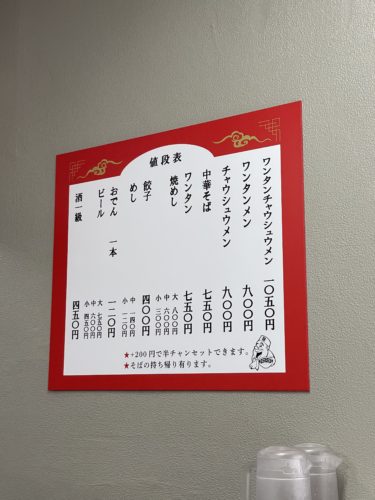 値段表
ワンタンチャウシュウメン 一〇五〇円
ワンタンメン 九〇〇円
チャウシュウメン 九〇〇円
中華そば 七五〇円
ワンタン 七五〇円
焼めし 大 八〇〇円
中 六〇〇円
小 三〇〇円
餃子 四〇〇円
めし 中 一四〇円
小 一二〇円
おでん 一本 一二〇円
ビール 大 七五〇円
中 六〇〇円
小 四五〇円
酒一級 四五〇円
★+200円で半チャンセットできます。
★そばの持ち帰り有ります。